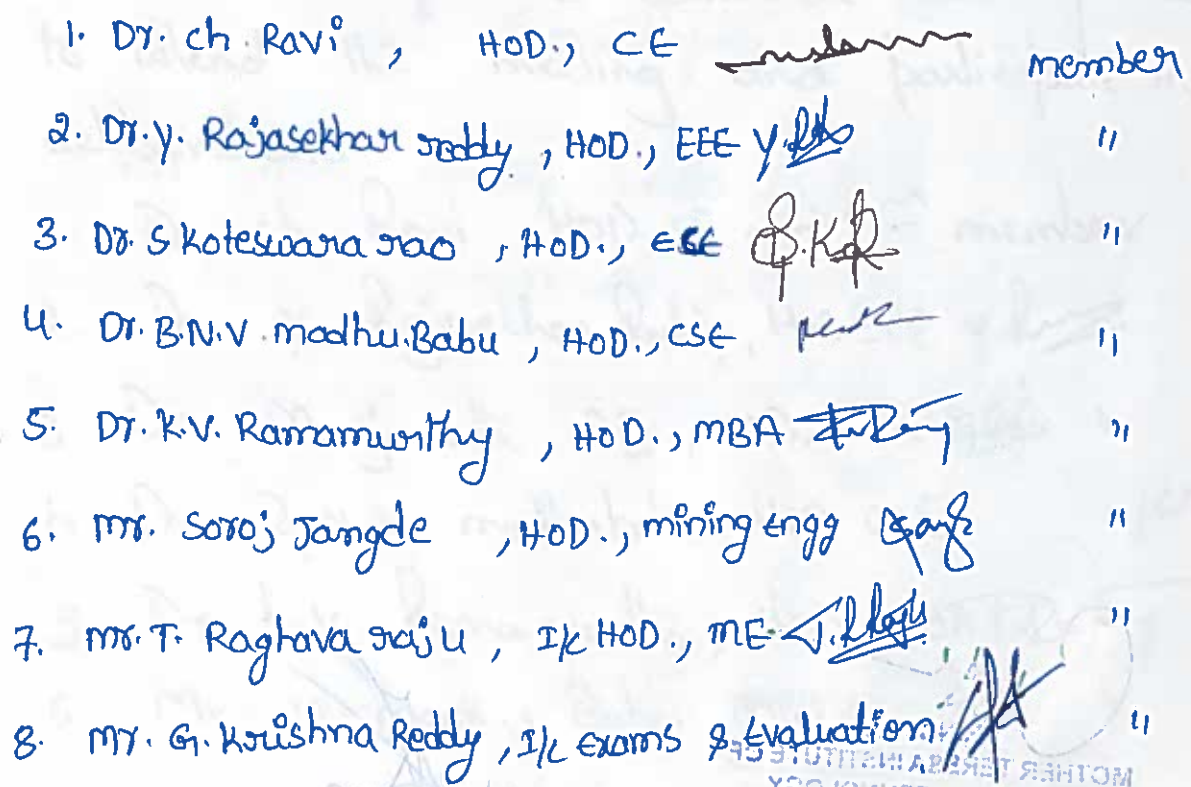 1. Dr. ch. Ravi, HOD., CE member
2. Dr. y. Rajasekhar reddy, HOD., EEE "
3. Dr. S Koteswara rao, HOD., ECE "
4. Dr. B.N.V. madhu.Babu, HOD., CSE "
5. Dr. K.V. Ramamurthy, HOD., MBA "
6. mr. Soroj Jangde, HOD., mining Engg "
7. mr. T. Raghava raju, I/c HOD., ME "
8. mr. G. Krishna Reddy, I/c Exams & Evaluation "
MOTHER TERESA INSTITUTE OF